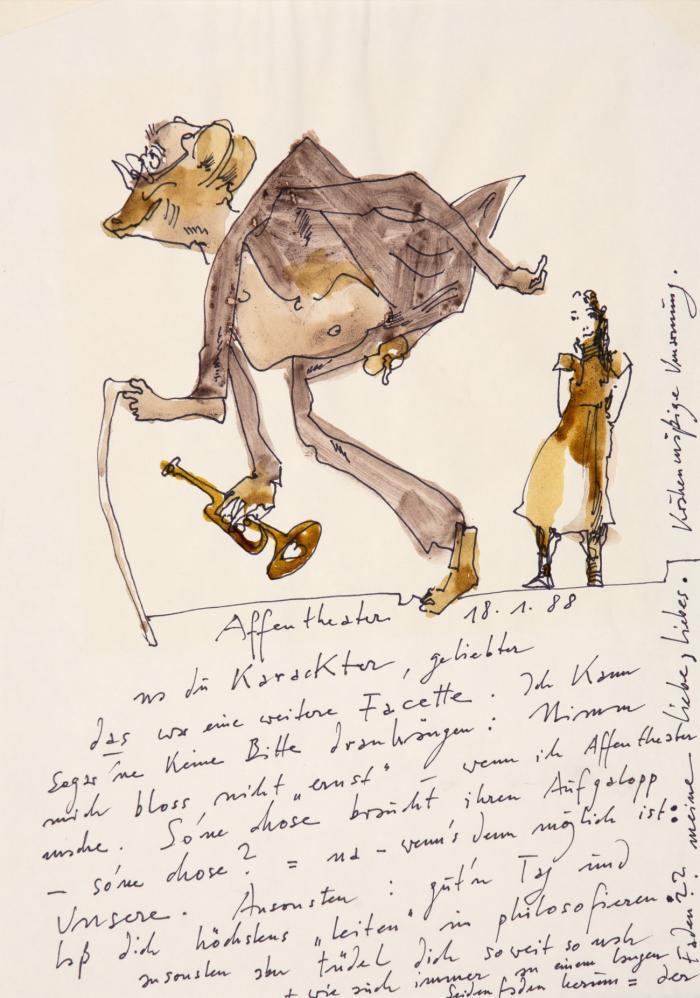 Affentheater 18. 1. 88
na du Karackter, geliebter
das war eine weitere Facette. Ich kann
sogar 'ne keine Bitte dranhängen: Nimm
mich bloss nicht „ernst" – wenn ich Affentheater
mache. So'ne chose braucht ihren Aufgalopp
– so'ne chose? = na – wenn's denn möglich ist:
Unsere. Ansonsten: gut'n Tag und
laß dich höchstens „leiten" im philosofieren
ansonsten aber tüdel dich soweit so nah
+ wie auch immer an einem langen
Seidenfaden herum = der
Faden?? meine liebe, liebes.